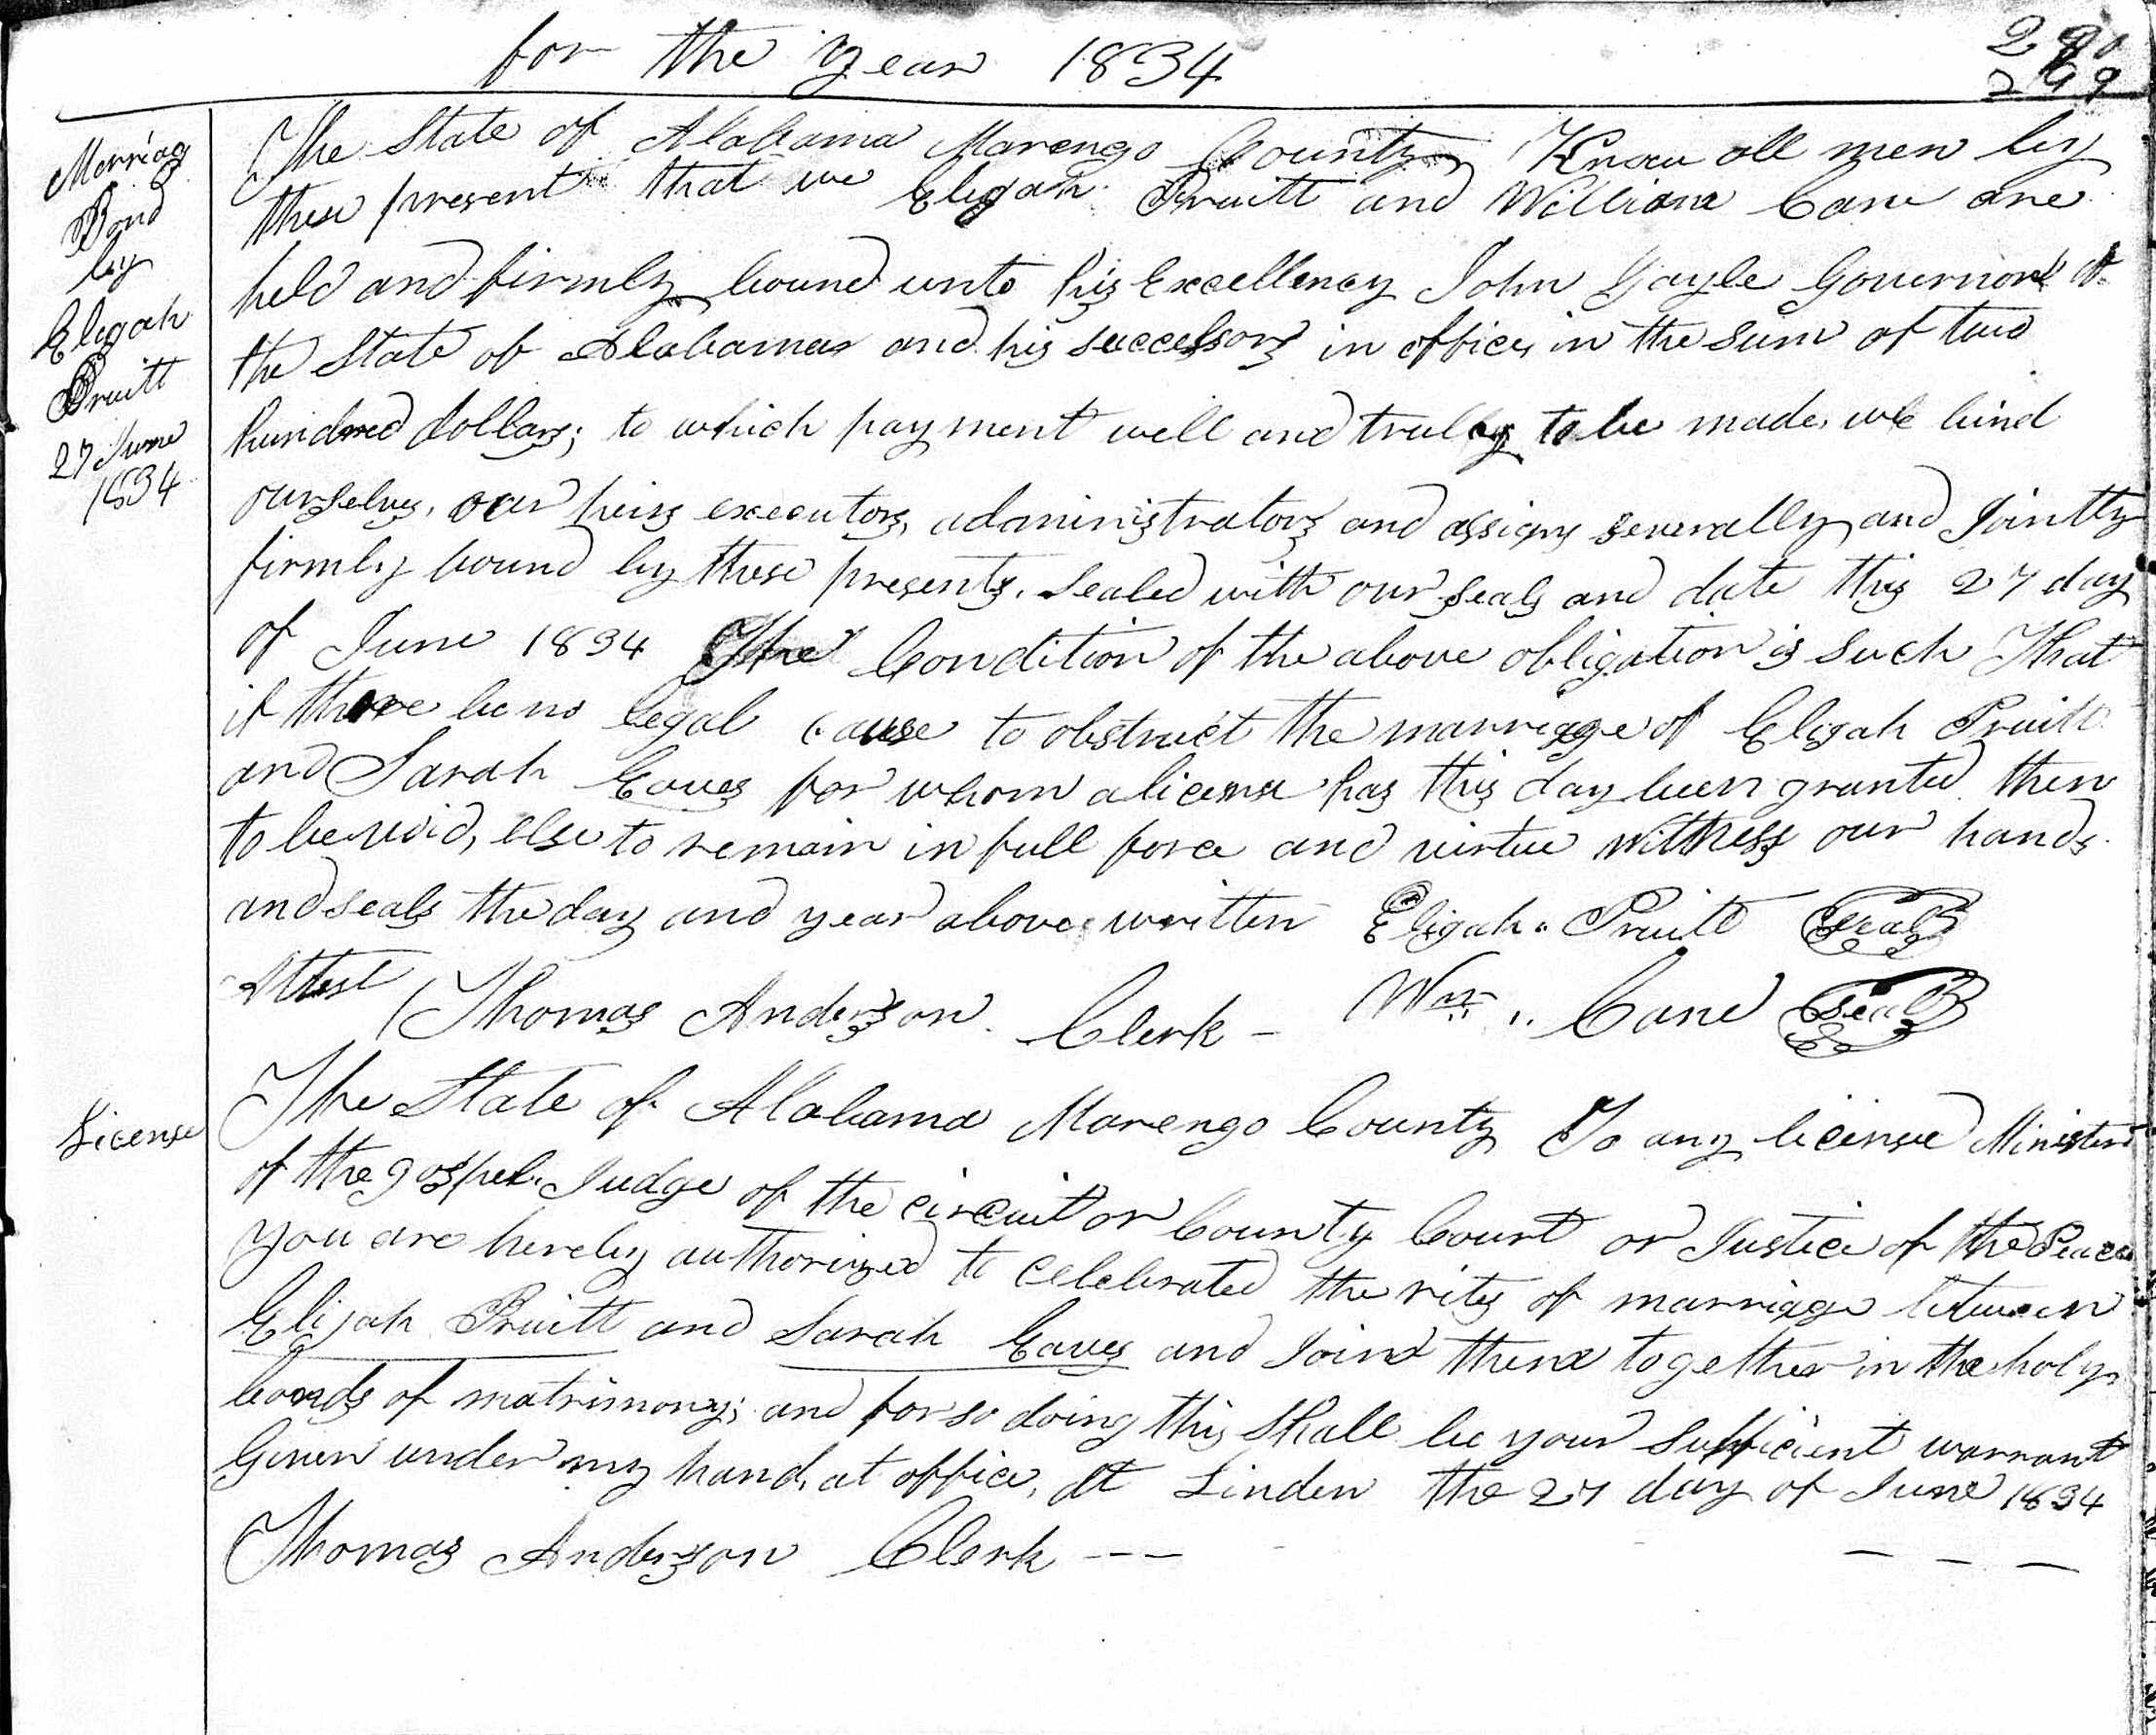 for the year 1834
269
Merriag
Bond
by
Elijah
Pruitt
27 June
1834
The State of Alabama Marengo County Know all men by
these present that we Elijah Pruitt and William Cane are
held and firmly bound unto his Excellency John Gayle Governor of
the State of Alabama and his successors in office, in the sum of two
hundred dollars; to which payment well and truly to be made, we bind
ourselves, our heirs executors, administrators and assigns severally and Jointly
firmly bound by these presents. Sealed with our seals and date this 27 day
of June 1834 The Condition of the above obligation is such That
if there be no legal cause to obstruct the marriage of Elijah Pruitt
and Sarah Eaves for whom a license has this day been granted then
to be void, else to remain in full force and virtue Witness our hands
and seals the day and year above written Elijah Pruitt Seal
Attest Thomas Anderson Clerk - Wm. Cane Seal
License
The State of Alabama Marengo County To any license Minister
of the gospel. Judge of the circuit or County Court or Justice of the Peace
you are hereby authorized to celebrated the rites of marriage between
Elijah Pruitt and Sarah Eaves and Joind them together in the holy
bonds of matrimony; and for so doing this Shall be your Sufficient warrant
Given under my hand, at office, At Linden the 27 day of June 1834
Thomas Anderson Clerk --- - - -